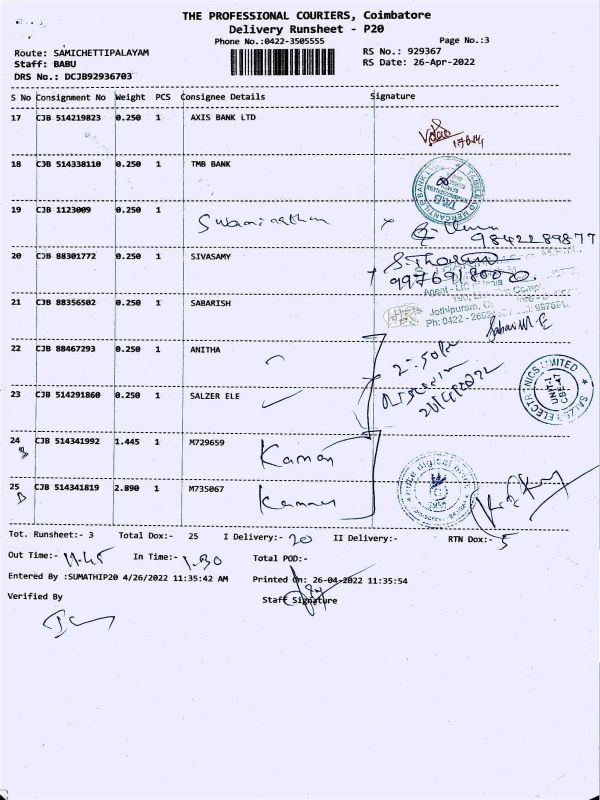 THE PROFESSIONAL COURIERS, Coimbatore
Delivery Runsheet - P20
Phone No.:0422-3505555
Page No.:3
Route: SAMICHETTIPALAYAM
RS No.: 929367
Staff: BABU
RS Date: 26-Apr-2022
DRS No.: DCJB92936703
S No Consignment No Weight PCS Consignee Details Signature
17 CJB 514219823 0.250 1 AXIS BANK LTD
18 CJB 514338110 0.250 1 TMB BANK
19 CJB 1123009 0.250 1 Swaminathan
9842289877
20 CJB 88301772 0.250 1 SIVASAMY
9976918600
21 CJB 88356502 0.250 1 SABARISH
Jothipuram,
Ph: 0422 -
22 CJB 88467293 0.250 1 ANITHA
2:50
23 CJB 514291860 0.250 1 SALZER ELE
SALZER ELECTRONICS LIMITED
24 CJB 514341992 1.445 1 M729659 Kannan
25 CJB 514341819 2.890 1 M735067 Kannan
Tot. Runsheet:- 3 Total Dox:- 25 I Delivery:- 20 II Delivery:- RTN Dox:- 5
Out Time:- 11.45 In Time:- 1.30 Total POD:-
Entered By :SUMATHIP20 4/26/2022 11:35:42 AM Printed On: 26-04-2022 11:35:54
Verified By Staff Signature